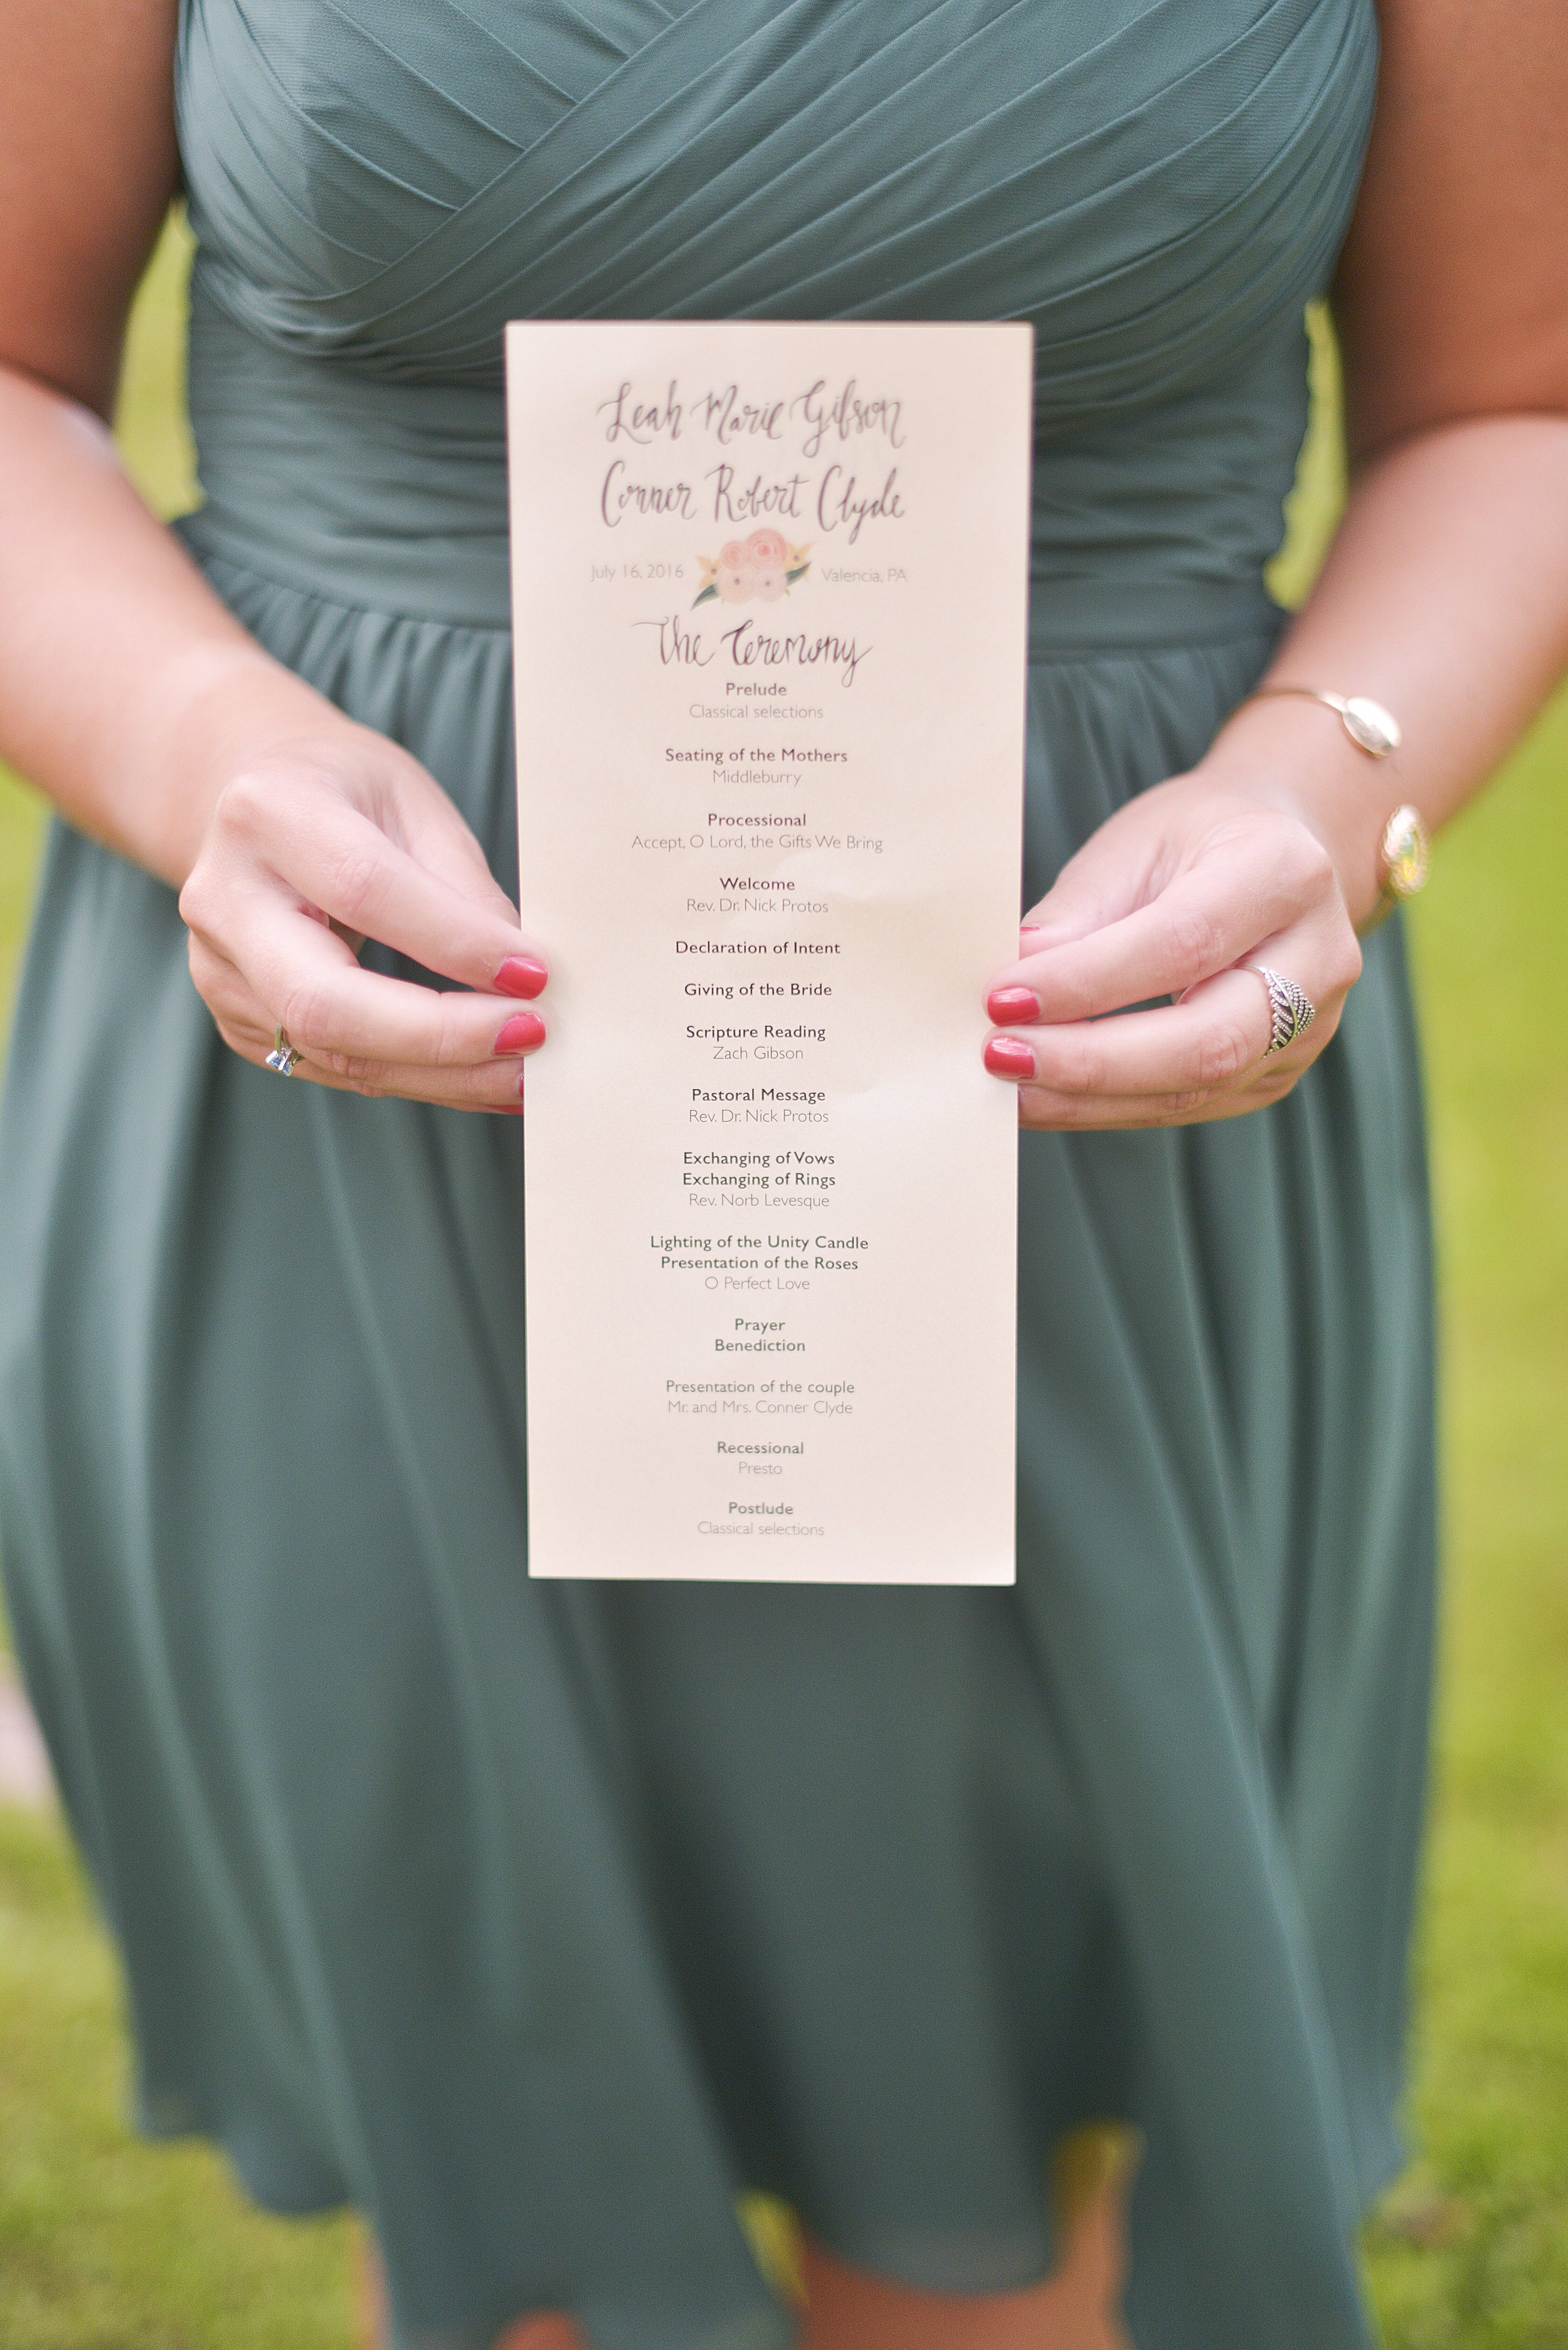 Leah Marie Gibson
Conner Robert Clyde
July 16, 2016 Valencia, PA
The Ceremony
Prelude
Classical selections
Seating of the Mothers
Middleburry
Processional
Accept, O Lord, the Gifts We Bring
Welcome
Rev. Dr. Nick Protos
Declaration of Intent
Giving of the Bride
Scripture Reading
Zach Gibson
Pastoral Message
Rev. Dr. Nick Protos
Exchanging of Vows
Exchanging of Rings
Rev. Norb Levesque
Lighting of the Unity Candle
Presentation of the Roses
O Perfect Love
Prayer
Benediction
Presentation of the couple
Mr. and Mrs. Conner Clyde
Recessional
Presto
Postlude
Classical selections